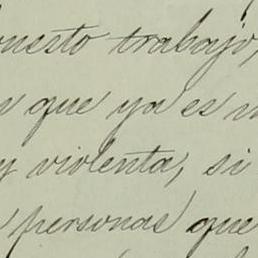 puesto trabajo,
que ya es
y violenta, si
personas que